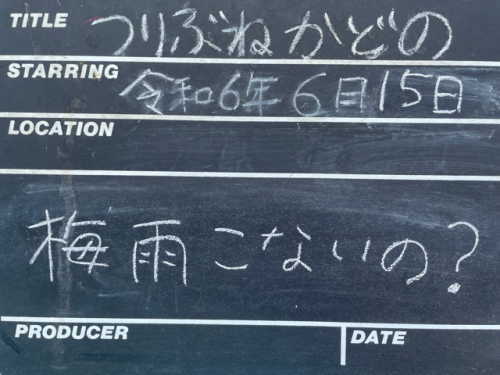 TITLE つりぶねかどの
STARRING 令和6年6月15日
LOCATION
梅雨こないの?
PRODUCER DATE